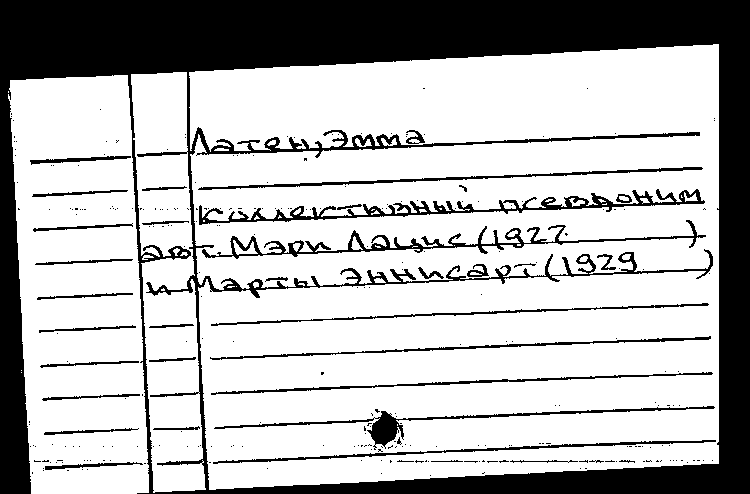 Латен, Эмма
коллективный псевдоним
авт. Мэри Лацис (1927 )
и Марты Эннисарт (1929 )